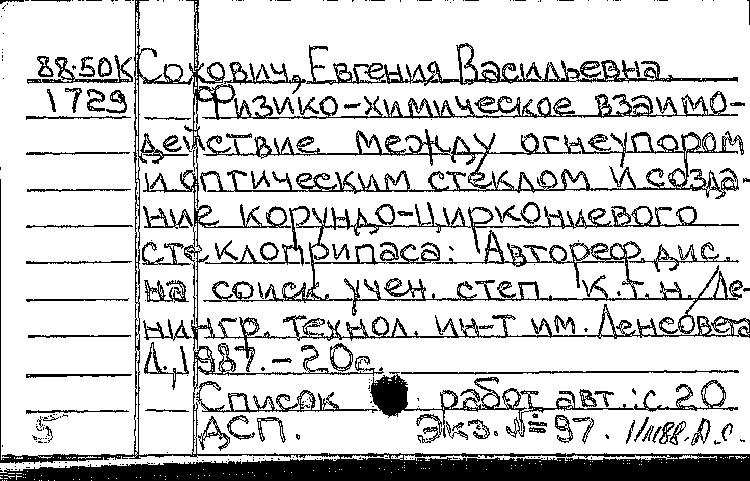 88-50К Сохович, Евгения Васильевна.
1729 Физико-химическое взаимо-
действие между огнеупором
и оптическим стеклом и созда-
ние корундо-циркониевого
стеклоприпаса: Автореф. дис.
на соиск. учен. степ. к.т.н. Ле-
нингр. технол. ин-т им. Ленсовета
Л., 1987. - 20с.
Список работ авт.: с. 20
5 ДСП. Экз. № 97.